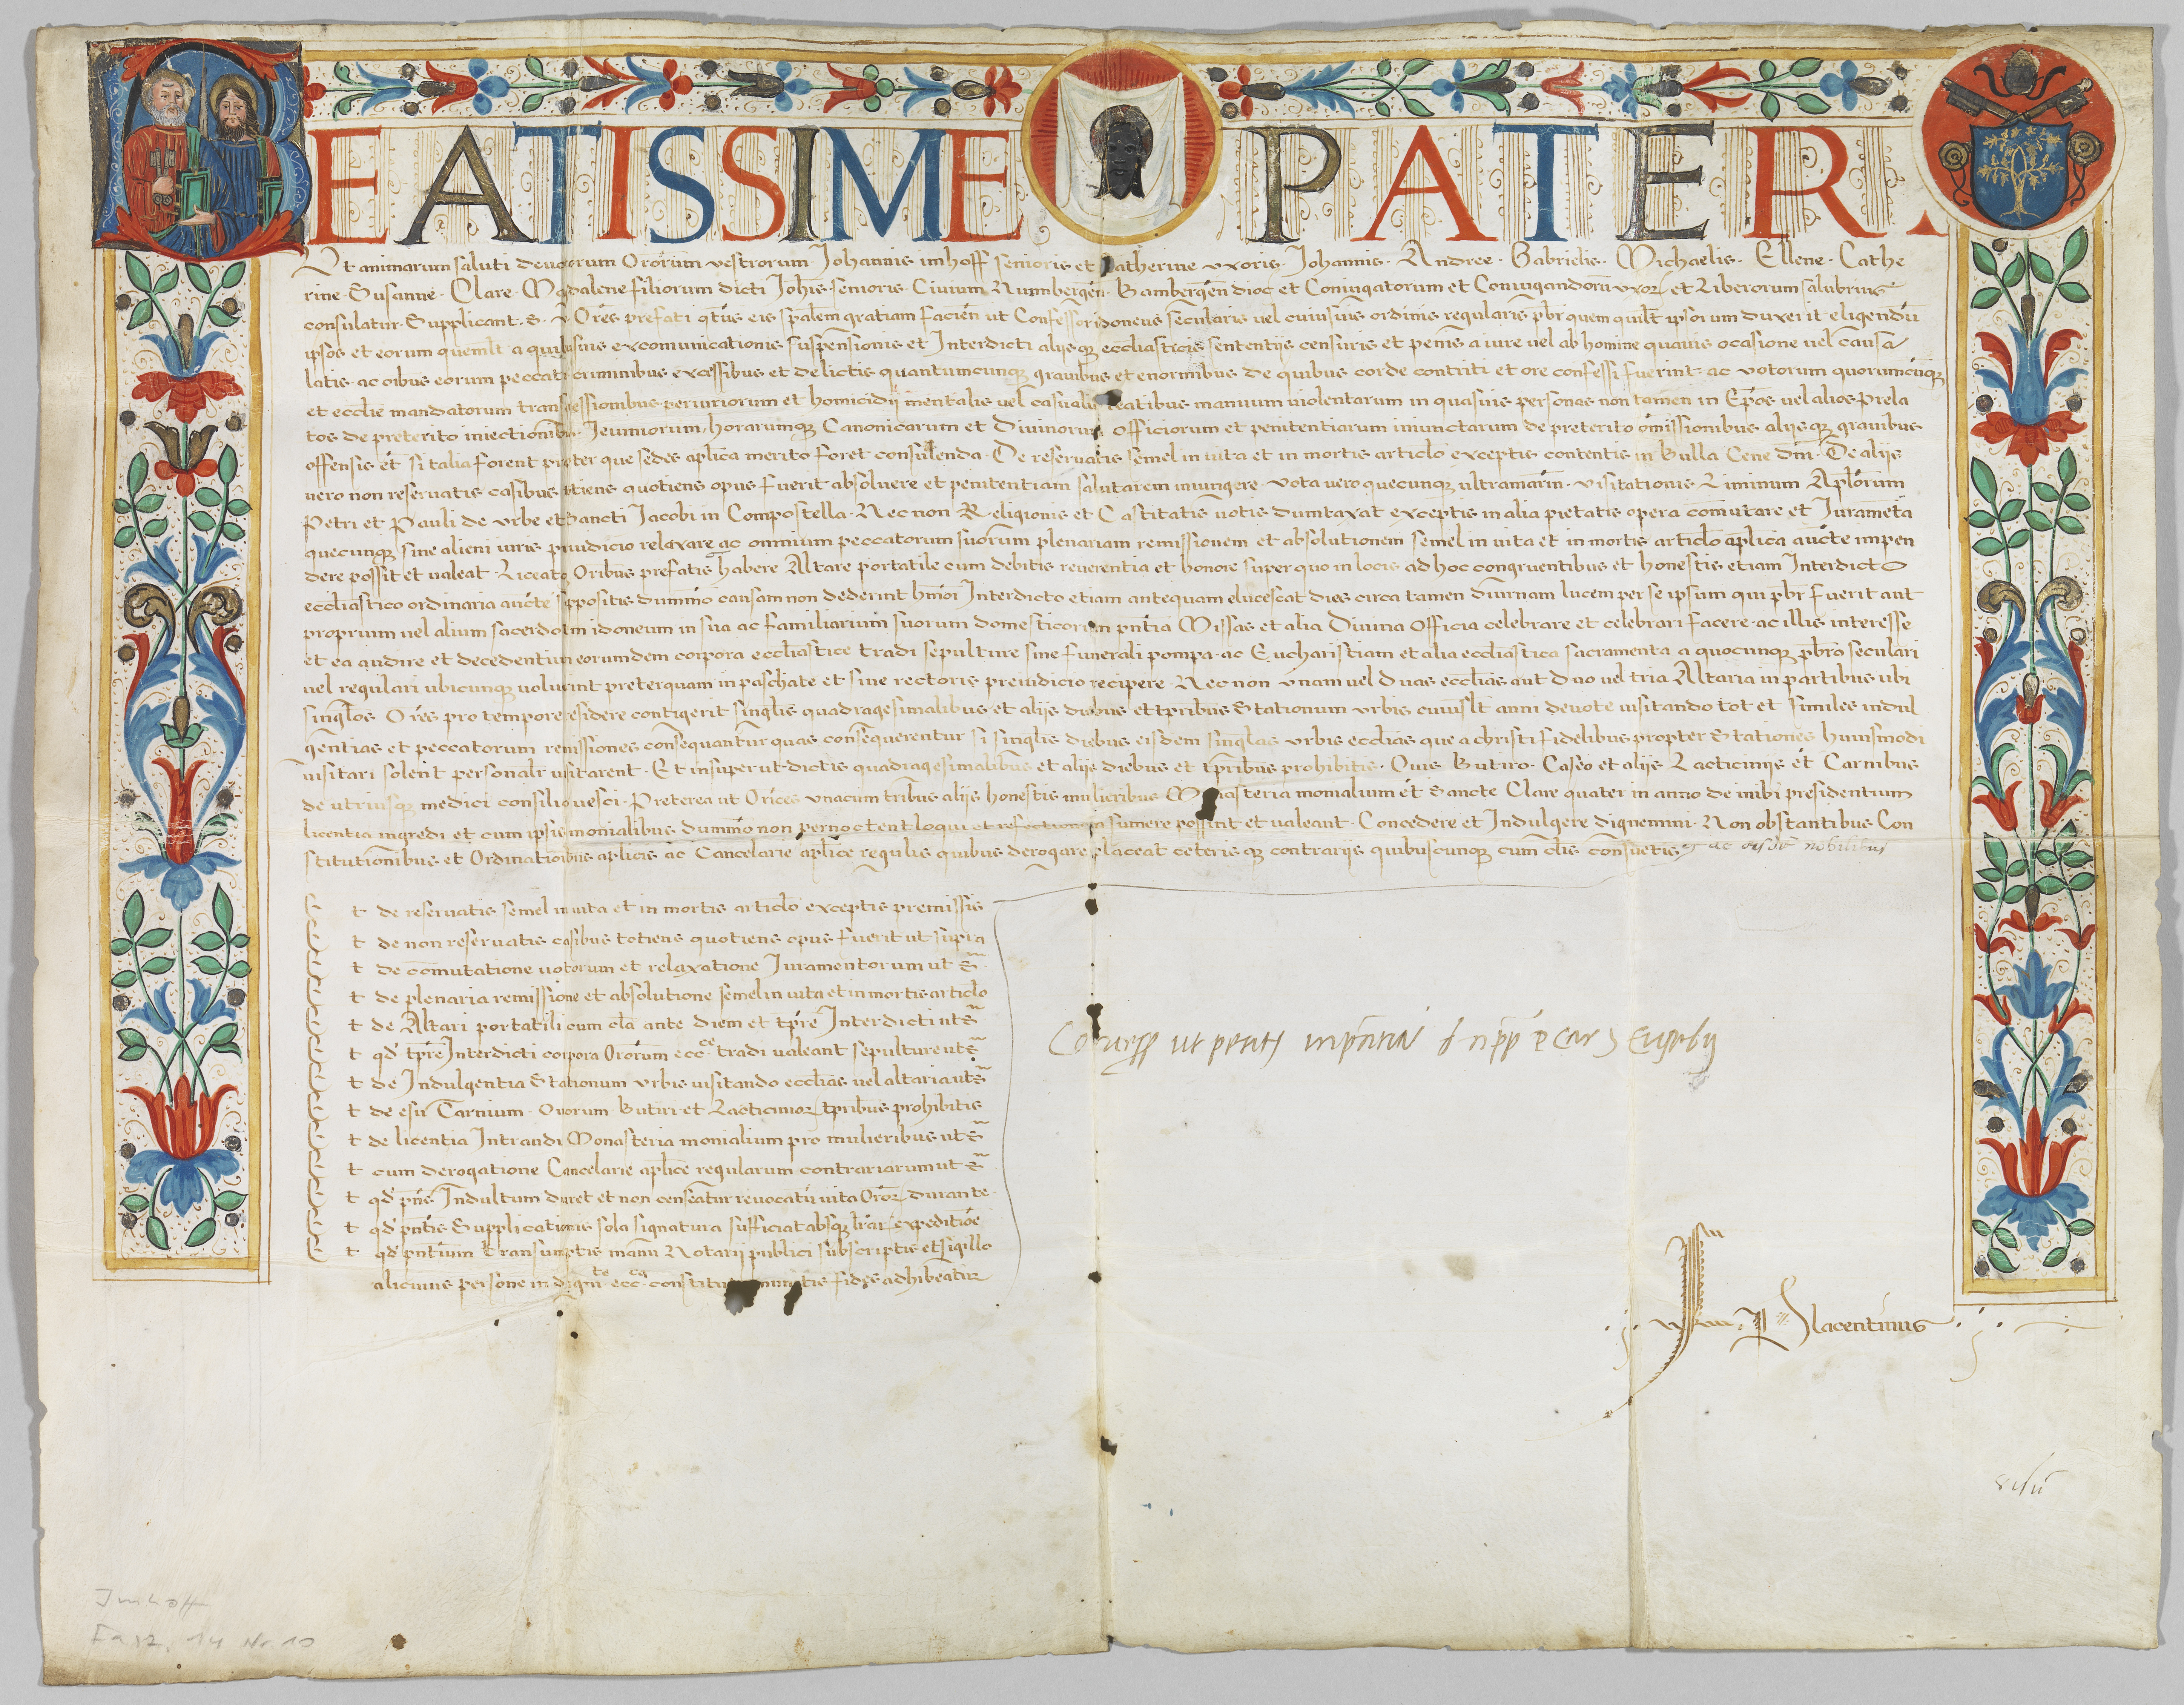 BEATISSIME PATER.
Ut animarum saluti devotorum Orōrum vestrorum Johannis imhoff senioris et Katherine uxoris. Johannis. Andree. Gabrielis. Michaelis. Ellene. Cathe
rine. Susanne. Clare. Magdalene filiorum dicti Joh̄is senioris Civium Nurmbergen̄. Bambergen̄ dioc̄ et Coniugatorum et Coniugandorū uxoꝝ et Liberorum salubrius
consulatur. Supplicant. S. v. Orēs prefati q̄t̄us eis sp̄alem gratiam facien̄ ut Confessor idoneus secularis vel cuiusvis ordinis regularis p̄br̄ quem quil̄t ipsorum duxerit eligendū
ipsos et eorum queml̄t a quibusvis excomunicationis suspensionis et Interdicti aliisqꝫ ecclīasticis sententiis censuris et penis a iure vel ab homine quavis ocasione vel causa
latis. ac oībus eorum peccatis criminibus excessibus et delictis quantumcunqꝫ gravibus et enormibus de quibus corde contriti et ore confessi fuerint. ac votorum quorumcūqꝫ
et ecclīe mandatorum transgressionibus periuriorum et homicidii mentalis vel casualis reatibus manuum violentarum in quasvis personas non tamen in Ep̄os vel alios Prela
tos de preterito iniectionibus. Jeiuniorum, horarumqꝫ Canonicarum et Divinorum officiorum et penitentiarum iniunctarum de preterito omissionibus aliisqꝫ gravibus
offensis et̄ si talia forent propter que sedes aplīca merito foret consulenda. De reservatis semel in vita et in mortis articlo exceptis contentis in Bulla Cene dn̄i. De aliis
vero non reservatis casibus totiens quotiens opus fuerit absolvere et penitentiam salutarem iniungere. vota vero quecunqꝫ ultramarin̄. visitationis Liminum Aplōrum
Petri et Pauli de Urbe et Sancti Jacobi in Compostella. Nec non Religionis et Castitatis votis dumtaxat exceptis in alia pietatis opera com̄utare et Juramēta
quecunqꝫ sine alieni iuris preiudicio relaxare ac omnium peccatorum suorum plenariam remissionem et absolutionem semel in vita et in mortis articlo aplīca aucte impen
dere possit et valeat Liceatqꝫ Oribus prefatis habere Altare portatile cum debitis reverentia et honore super quo in locis ad hoc congruentibus et honestis etiam Interdicto
ecclīastico ordinaria aucte suppositis dummo causam non dederint hm̄oi Interdicto etiam antequam elucescat dies circa tamen diurnam lucem per se ipsum qui p̄br̄ fuerit aut
proprium vel alium sacerdotem idoneum in sua ac familiarium suorum domesticorum pn̄tia Missas et alia Divina officia celebrare et celebrari facere. ac illis interesse
et ea audire et decedentium eorumdem corpora ecclīastice tradi sepulture sine funerali pompa. ac Eucharistiam et alia ecclīastica sacramenta a quocunqꝫ p̄br̄o seculari
vel regulari ubicunqꝫ voluerint preterquam in paschate et sine rectoris preiudicio recipere. Nec non unam vel duas ecclīas aut duo vel tria Altaria in partibus ubi
singlos Orēs pro tempore residere contigerit singlis quadragesimalibus et aliis diebus et tp̄ribus Stationum urbis cuiusl̄t anni devote visitando tot et similes indul
gentias et peccatorum remissiones consequantur quas consequerentur si singlis diebus eisdem singlas urbis ecclīas que a christifidelibus propter Stationes huiusmodi
visitari solent personalr̄ visitarent. Et insuper ut dictis quadragesimalibus et aliis diebus et tp̄ribus prohibitis. Ovis. Butiro. Caseo et aliis Lacticiniis et Carnibus
de utriusqꝫ medici consilio vesci. Preterea ut Orīces unacum tribus aliis honestis mulieribus Monasteria monialium et̄ Sancte Clare quater in anno de inibi presidentium
licentia ingredi et cum ipsis monialibus dummo non pernoctent loqui et refectionem sumere possint et valeant. Concedere et Indulgere dignemini. Non obstantibus Con
stitutionibus et Ordinationibus aplīcis ac Cancelarie aplīce regulis quibus derogare placeat ceterisqꝫ contrariis quibuscunqꝫ cum clīs consuetis
t de reservatis semel in vita et in mortis articlo exceptis premissis
t de non reservatis casibus totiens quotiens opus fuerit ut supra
t de com̄utatione votorum et relaxatione Juramentorum ut S̄
t de plenaria remissione et absolutione semel in vita et in mortis articlo
t de Altari portatili cum cl̄a ante diem et tp̄re Interdicti ut S̄
t qd̄ tp̄re Interdicti corpora Orōrum ecc.ce tradi valeant sepulture ut S̄
t de Indulgentia Stationum urbis visitando ecclīas vel altaria ut S̄
t de esu Carnium. Ovorum Butiri et Lacticinioꝝ tp̄ribus prohibitis
t de licentia Intrandi Monasteria monialium pro mulieribus ut S̄
t cum derogatione Cancelarie aplīce regularum contrariarum ut S̄
t qd̄ pn̄s Indultum duret et non censeatur revocatū vita Oroꝝ durante.
t qd̄ pn̄tis Supplicationis sola signatura sufficiat absqꝫ lr̄aꝝ expeditiōe
t qd̄ pn̄tium transumptis manu Notarii publici subscriptis et sigillo
alicuius persone in dignte ecca constitute munitis fides adhibeatur
Placentinus
Imhoff
Fasz. 14 Nr. 10